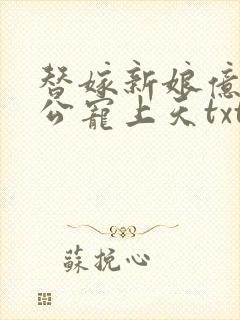 替嫁新娘億
公寵上天txt
蘇挽心